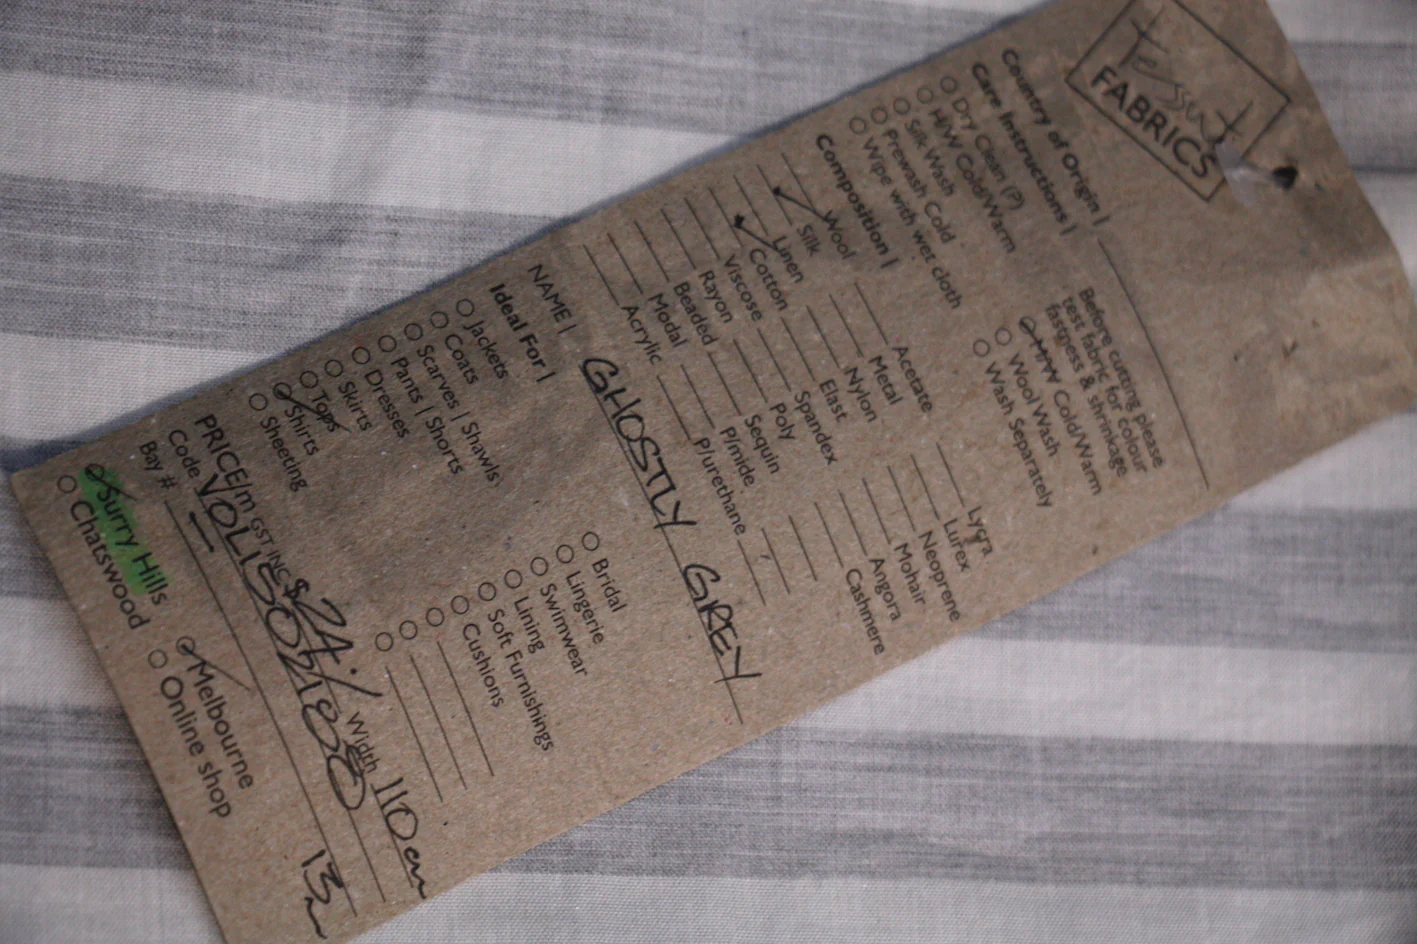 Tessuti
FABRICS
Country of Origin |
Care Instructions |
Dry Clean (P)
H/W Cold/Warm
Silk Wash
Prewash Cold
Wipe with wet cloth
Before cutting please
test fabric for colour
fastness & shrinkage
Cold/Warm
Wool Wash
Wash Separately
Composition |
Wool
Silk
Linen
Cotton
Viscose
Rayon
Beaded
Modal
Acrylic
Acetate
Metal
Nylon
Elast
Spandex
Poly
Sequin
P/mide
P/urethane
Lycra
Lurex
Neoprene
Mohair
Angora
Cashmere
NAME | GHOSTLY GREY
Ideal For |
Jackets
Coats
Scarves | Shawls
Pants | Shorts
Dresses
Skirts
Tops
Shirts
Sheeting
Bridal
Lingerie
Swimwear
Lining
Soft Furnishings
Cushions
PRICE/m GST INC $24.- Width 110cm
Code
Bay # 13m
Surry Hills
Chatswood
Melbourne
Online shop